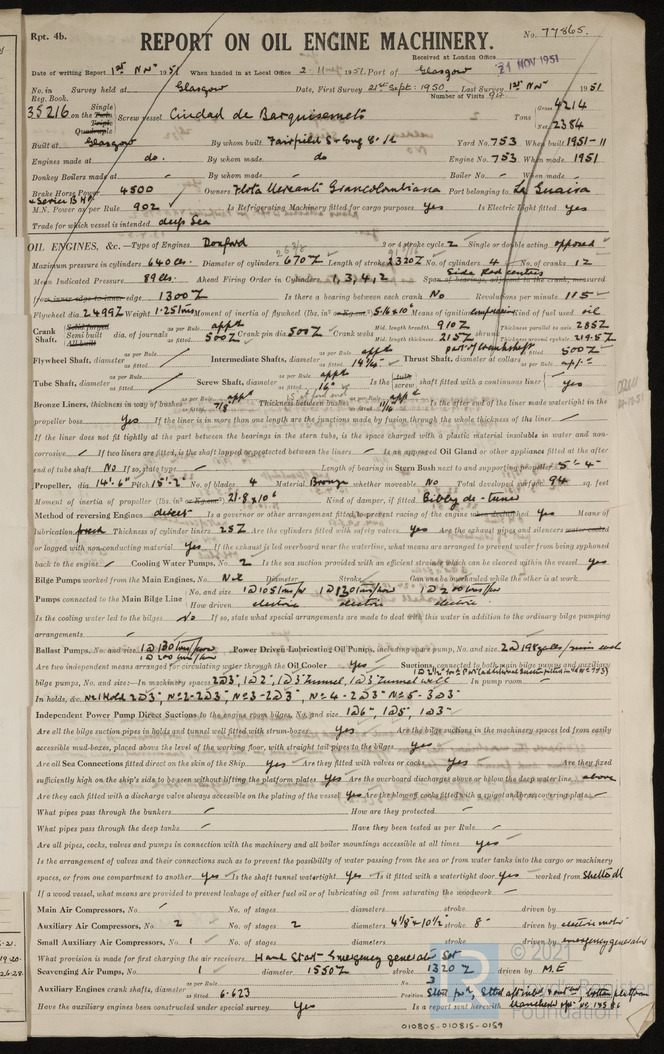 Rpt. 4b.
No. 77865.
REPORT ON OIL ENGINE MACHINERY.
Received at London Office 21 NOV 1951
Date of writing Report 1st Nov 1951 When handed in at Local Office 2. 11. 1951. Port of Glasgow
No. in Reg. Book. Survey held at Glasgow Date, First Survey 21st Sept: 1950. Last Survey 1st Nov 1951
Number of Visits 94
35216 on the Single Triple Quadruple Screw vessel Ciudad de Barquisemeto Tons Gross 4214 Net 2384
Built at Glasgow By whom built Fairfield S. Eng Co. Ld Yard No. 753 When built 1951-11
Engines made at do. By whom made do Engine No. 753 When made 1951
Donkey Boilers made at By whom made Boiler No. When made
Brake Horse Power 4500 Owners Flota Mercante Grancolombiana Port belonging to La Guaira
M.N. Power as per Rule 902 Is Refrigerating Machinery fitted for cargo purposes Yes Is Electric Light fitted Yes
Trade for which vessel is intended deep Sea
OIL ENGINES, &c.—Type of Engines Doxford 2 or 4 stroke cycle 2 Single or double acting opposed
Maximum pressure in cylinders 640 lbs. Diameter of cylinders 670 Length of stroke 2320 No. of cylinders 4 No. of cranks 12
Mean Indicated Pressure 89 lbs. Ahead Firing Order in Cylinders 1, 3, 4, 2 Span of bearings, adjacent to the crank, measured
Side Rod centres
from inner edge to inner edge 1300 Is there a bearing between each crank No Revolutions per minute 115
Flywheel dia. 2499 Weight 1.25 tons Moment of inertia of flywheel (lbs. in² or Kg.cm²) Means of ignition compression Kind of fuel used oil
Crank Shaft, Solid forged Semi built All built dia. of journals as per Rule appd as fitted 500 Crank pin dia. 500 Crank webs Mid. length breadth 910 Mid. length thickness 215 Thickness parallel to axis 285 Thickness around eyehole 219.5
Flywheel Shaft, diameter as per Rule as fitted Intermediate Shafts, diameter as per Rule appd as fitted 14¼" Thrust Shaft, diameter at collars part of crankshaft as per Rule 500 as fitted
Tube Shaft, diameter as per Rule as fitted Screw Shaft, diameter as per Rule appd as fitted 16" Is the tube screw shaft fitted with a continuous liner Yes
Bronze Liners, thickness in way of bushes as per Rule appd as fitted 7/8" Thickness between bushes as per Rule appd as fitted 11/16" Is the after end of the liner made watertight in the
propeller boss Yes If the liner is in more than one length are the junctions made by fusion through the whole thickness of the liner
If the liner does not fit tightly at the part between the bearings in the stern tube, is the space charged with a plastic material insoluble in water and non-
corrosive If two liners are fitted, is the shaft lapped or protected between the liners Is an approved Oil Gland or other appliance fitted at the after
end of tube shaft No If so, state type Length of bearing in Stern Bush next to and supporting propeller 5'-4"
Propeller, dia 14'-6" Pitch 15'-2" No. of blades 4 Material Bronze whether moveable No Total developed surface 94 sq. feet
Moment of inertia of propeller (lbs. in² or Kg.cm²) 21.8 x 10⁶ Kind of damper, if fitted Bibby de-tuner
Method of reversing Engines direct Is a governor or other arrangement fitted to prevent racing of the engine when declutched Yes Means of
lubrication forced Thickness of cylinder liners 25 Are the cylinders fitted with safety valves Yes Are the exhaust pipes and silencers water cooled
or lagged with non-conducting material Yes If the exhaust is led overboard near the waterline, what means are arranged to prevent water from being syphoned
back to the engine Cooling Water Pumps, No. 2 Is the sea suction provided with an efficient strainer which can be cleared within the vessel Yes
Bilge Pumps worked from the Main Engines, No. Nil Diameter Stroke Can one be overhauled while the other is at work
Pumps connected to the Main Bilge Line No. and size 1 @ 105 tons/hr 1 @ 130 tons/hour 1 @ 200 tons/hr
How driven electric electric electric
Is the cooling water led to the bilges No If so, state what special arrangements are made to deal with this water in addition to the ordinary bilge pumping
arrangements
Ballast Pumps, No. and size 1 @ 130 tons/hour 1 @ 200 tons/hour Power Driven Lubricating Oil Pumps, including spare pump, No. and size 2 @ 198 galls/min each
Are two independent means arranged for circulating water through the Oil Cooler Yes Suctions, connected to both main bilge pumps and auxiliary
bilge pumps, No. and size:—In machinery spaces 2 @ 3", 1 @ 2", 1 @ 3" tunnel, 1 @ 3" tunnel well In pump room
In holds, &c. No 1 Hold 2 @ 3", No 2 - 2 @ 3", No 3 - 2 @ 3", No 4 - 2 @ 3" No 5 - 3 @ 3"
Independent Power Pump Direct Suctions to the engine room bilges, No. and size 1 @ 6", 1 @ 5", 1 @ 3"
Are all the bilge suction pipes in holds and tunnel well fitted with strum-boxes Yes Are the bilge suctions in the machinery spaces led from easily
accessible mud-boxes, placed above the level of the working floor, with straight tail pipes to the bilges Yes
Are all Sea Connections fitted direct on the skin of the Ship Yes Are they fitted with valves or cocks Yes Are they fixed
sufficiently high on the ship's side to be seen without lifting the platform plates Yes Are the overboard discharges above or below the deep water line above
Are they each fitted with a discharge valve always accessible on the plating of the vessel Yes Are the blow off cocks fitted with a spigot and brass covering plate
What pipes pass through the bunkers How are they protected
What pipes pass through the deep tanks Have they been tested as per Rule
Are all pipes, cocks, valves and pumps in connection with the machinery and all boiler mountings accessible at all times Yes
Is the arrangement of valves and their connections such as to prevent the possibility of water passing from the sea or from water tanks into the cargo or machinery
spaces, or from one compartment to another Yes Is the shaft tunnel watertight Yes Is it fitted with a watertight door Yes worked from Shelter dk
If a wood vessel, what means are provided to prevent leakage of either fuel oil or of lubricating oil from saturating the woodwork
Main Air Compressors, No No. of stages diameters stroke driven by
Auxiliary Air Compressors, No 2 No. of stages 2 diameters 4⅛" & 10½" stroke 8" driven by electric motor
Small Auxiliary Air Compressors, No. 1 No. of stages diameters stroke driven by emergency generator
What provision is made for first charging the air receivers Hand Start-Emergency generator Set
Scavenging Air Pumps, No 1 diameter 1550 stroke 1320 driven by M.E
Auxiliary Engines crank shafts, diameter as per Rule as fitted 6.623 No. 3 Position
Have the auxiliary engines been constructed under special survey Yes Is a report sent herewith
© 2021
Foundation
010805-010815-0159